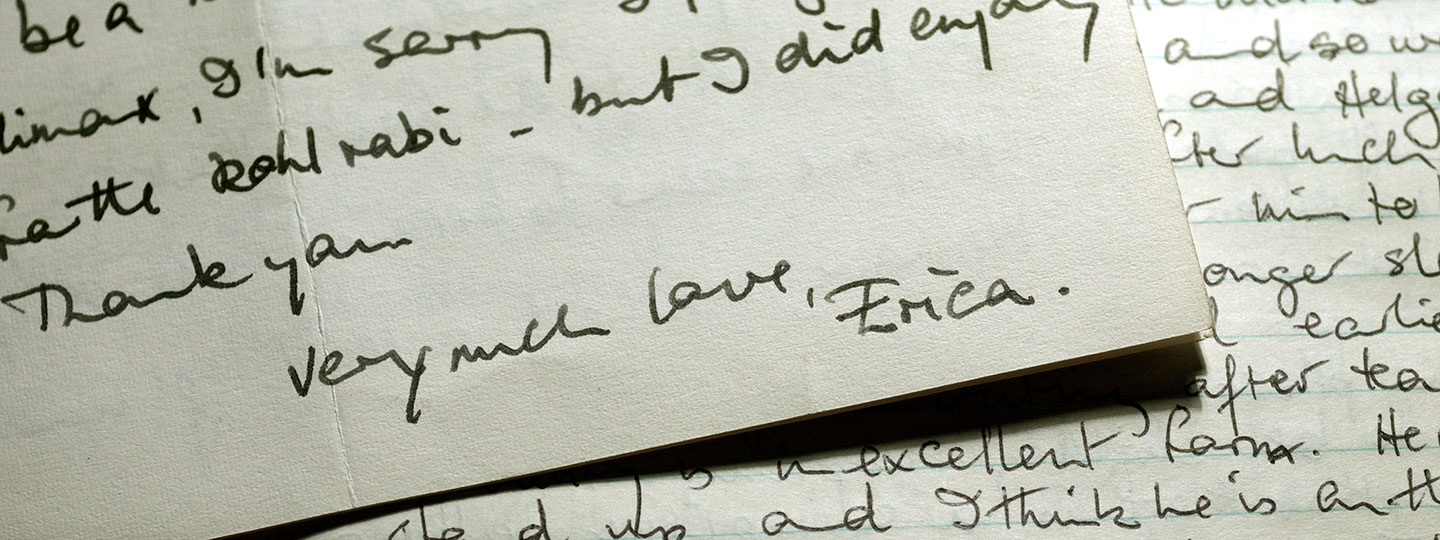 be a
climax, I'm sorry
for the kohl rabi - but I did enjoy
Thank you
very much love, Erica.
and so w
and Helg
after lunch
him to
longer sl
earlie
after tea
is in excellent form. He
up and I think he is on th